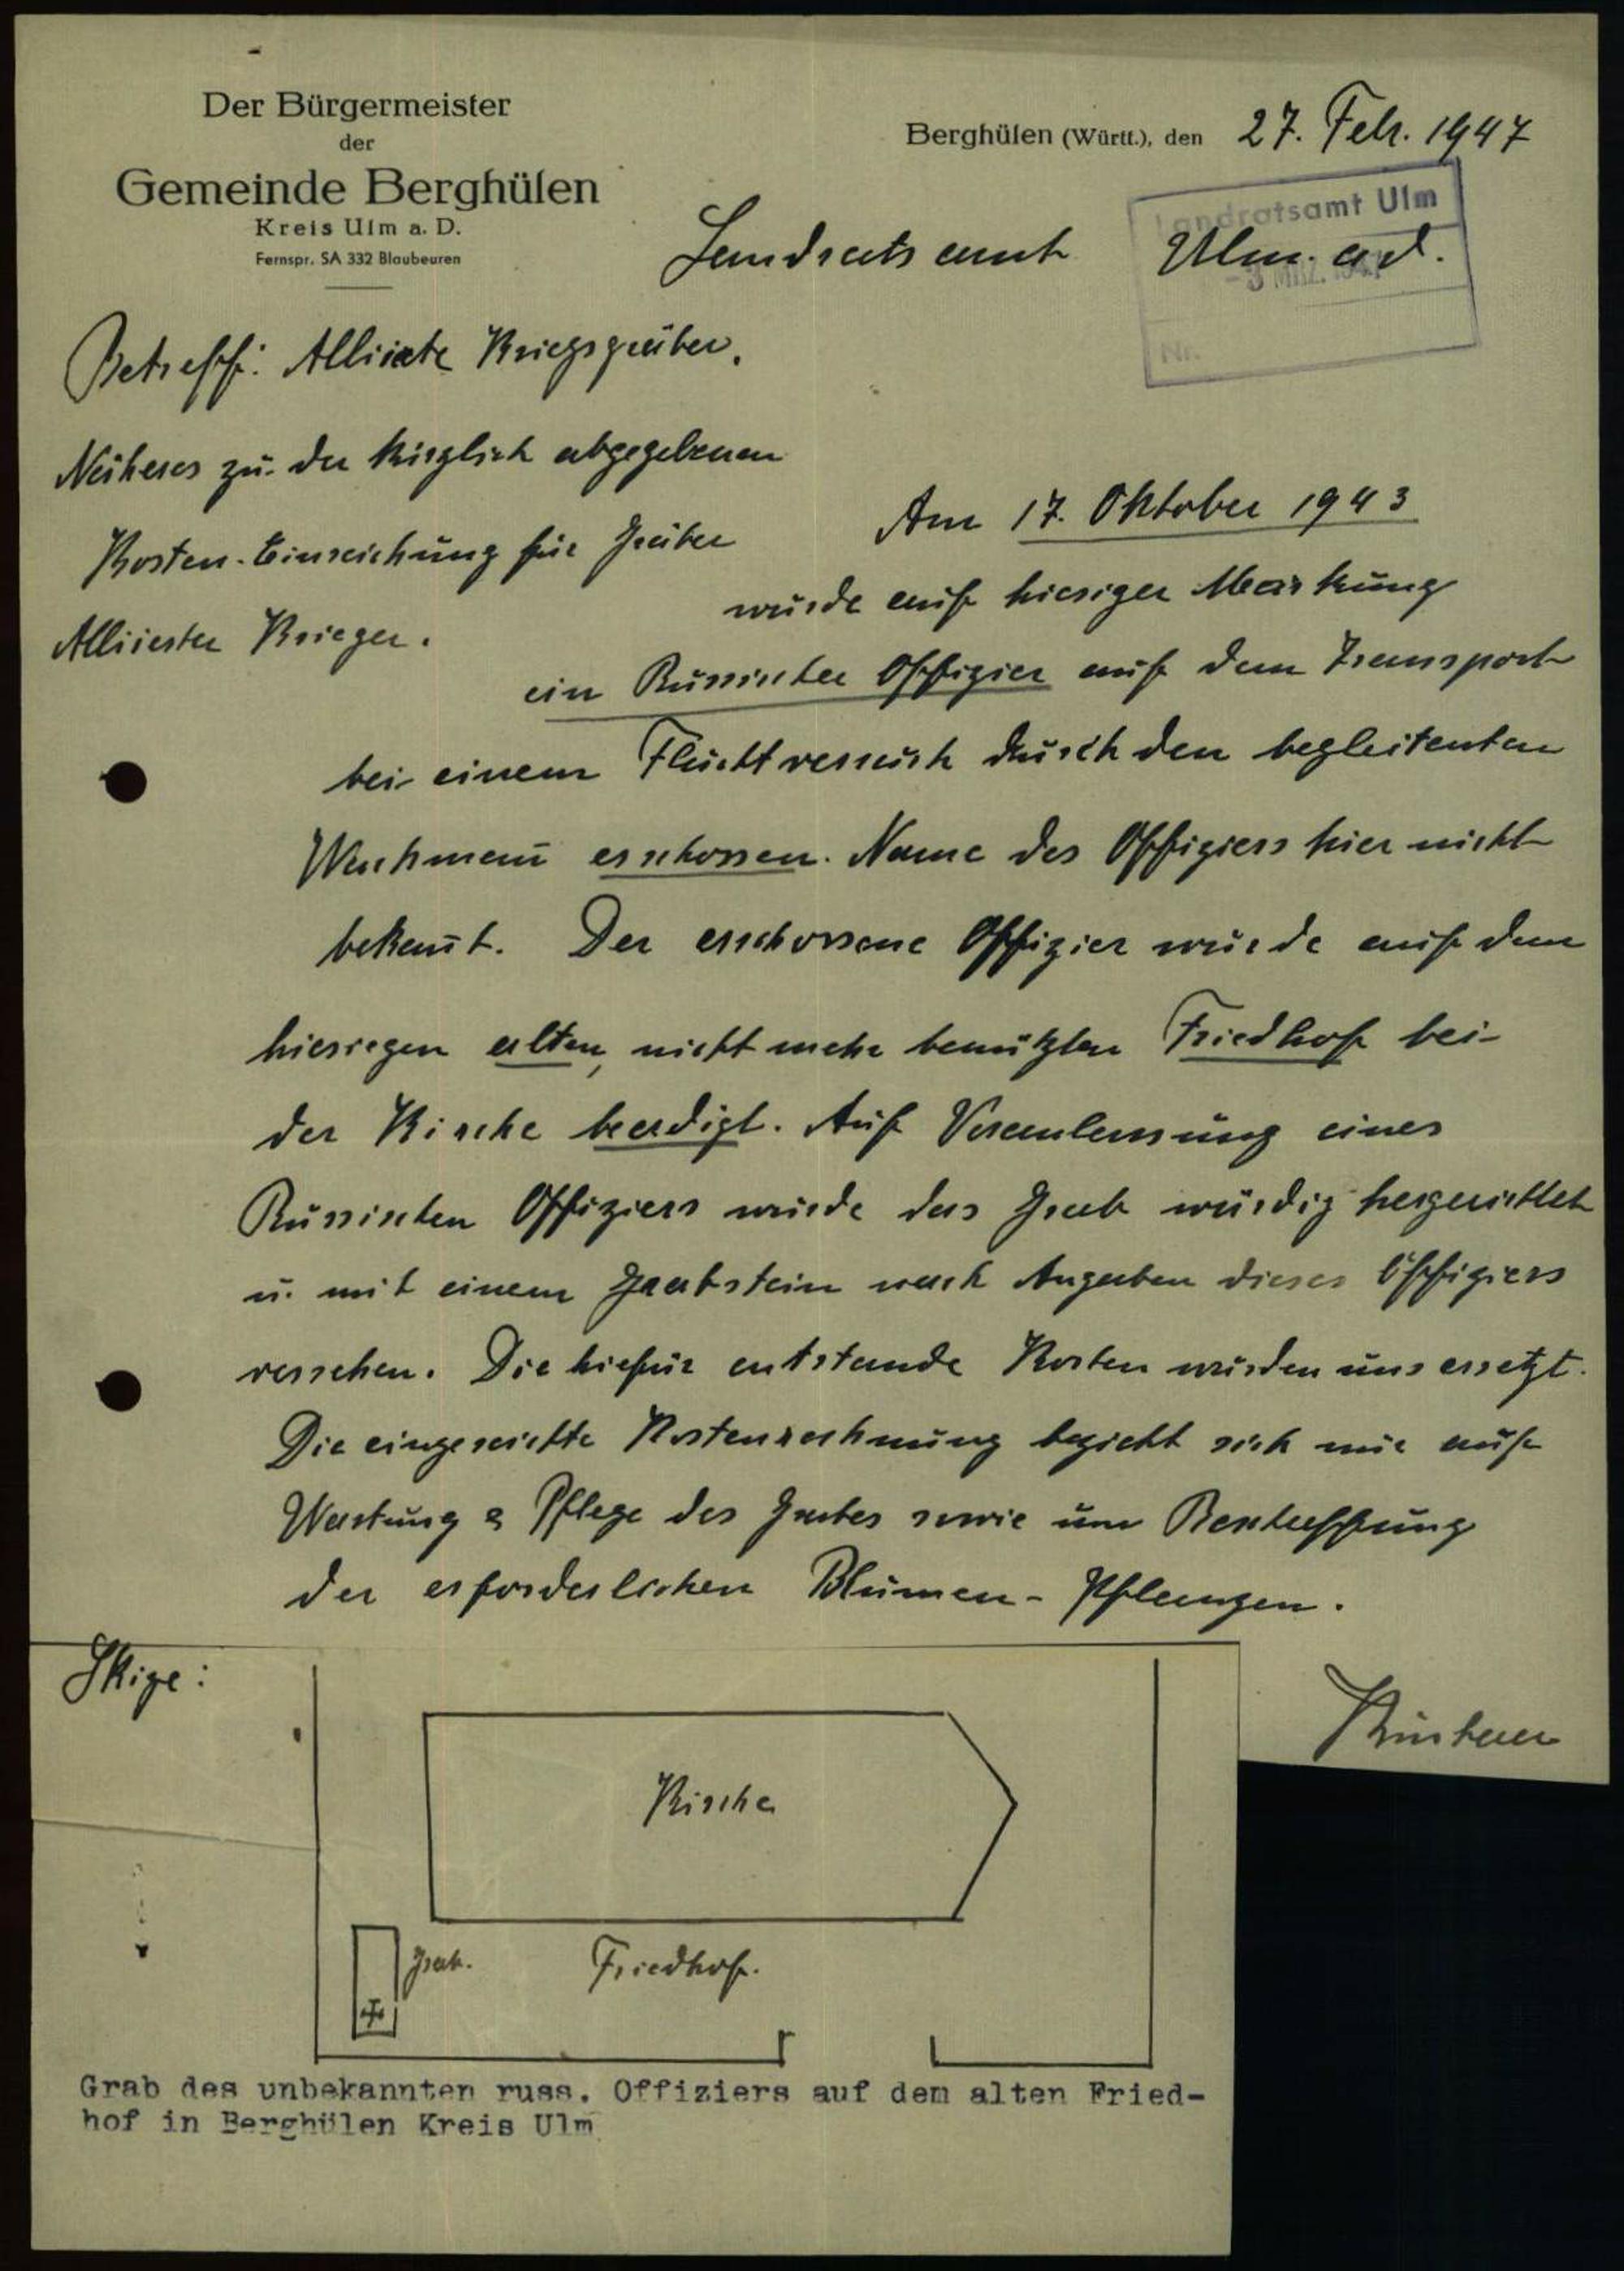 Der Bürgermeister
der
Gemeinde Berghülen
Kreis Ulm a. D.
Fernspr. SA 332 Blaubeuren
Berghülen (Württ.), den 27. Feb. 1947
Landratsamt Ulm
- 3 MRZ. 1947
Nr.
Landratsamt Ulm. a d.
Betreff: Alliierte Kriegsgräber.
Näheres zu der kürzlich abgegebenen
Kosten-Einreichung für Gräber
Alliierter Krieger.
Am 17. Oktober 1943
wurde auf hiesiger Markung
ein Russischer Offizier auf dem Transport
bei einem Fluchtversuch durch den begleitenten
Wachmañ erschossen. Name des Offiziers hier nicht
bekañt. Der erschossene Offizier wurde auf dem
hiesiegen alten, nicht mehr benützten Friedhof bei
der Kirche beerdigt. Auf Veranlassung eines
Russischen Offiziers wurde das Grab würdig hergerichtet
u. mit einem Grabstein nach Angaben dieses Offiziers
versehen. Die hiefür entstande Kosten wurden uns ersetzt.
Die eingereichte Kostenrechnung bezieht sich nur auf
Wartung & Pflege des Grabes sowie um Beschaffung
der erforderlichen Blumen-Pflanzen.
Skize:
Kirche
Grab.
Friedhof.
Grab des unbekannten russ. Offiziers auf dem alten Fried-
hof in Berghülen Kreis Ulm